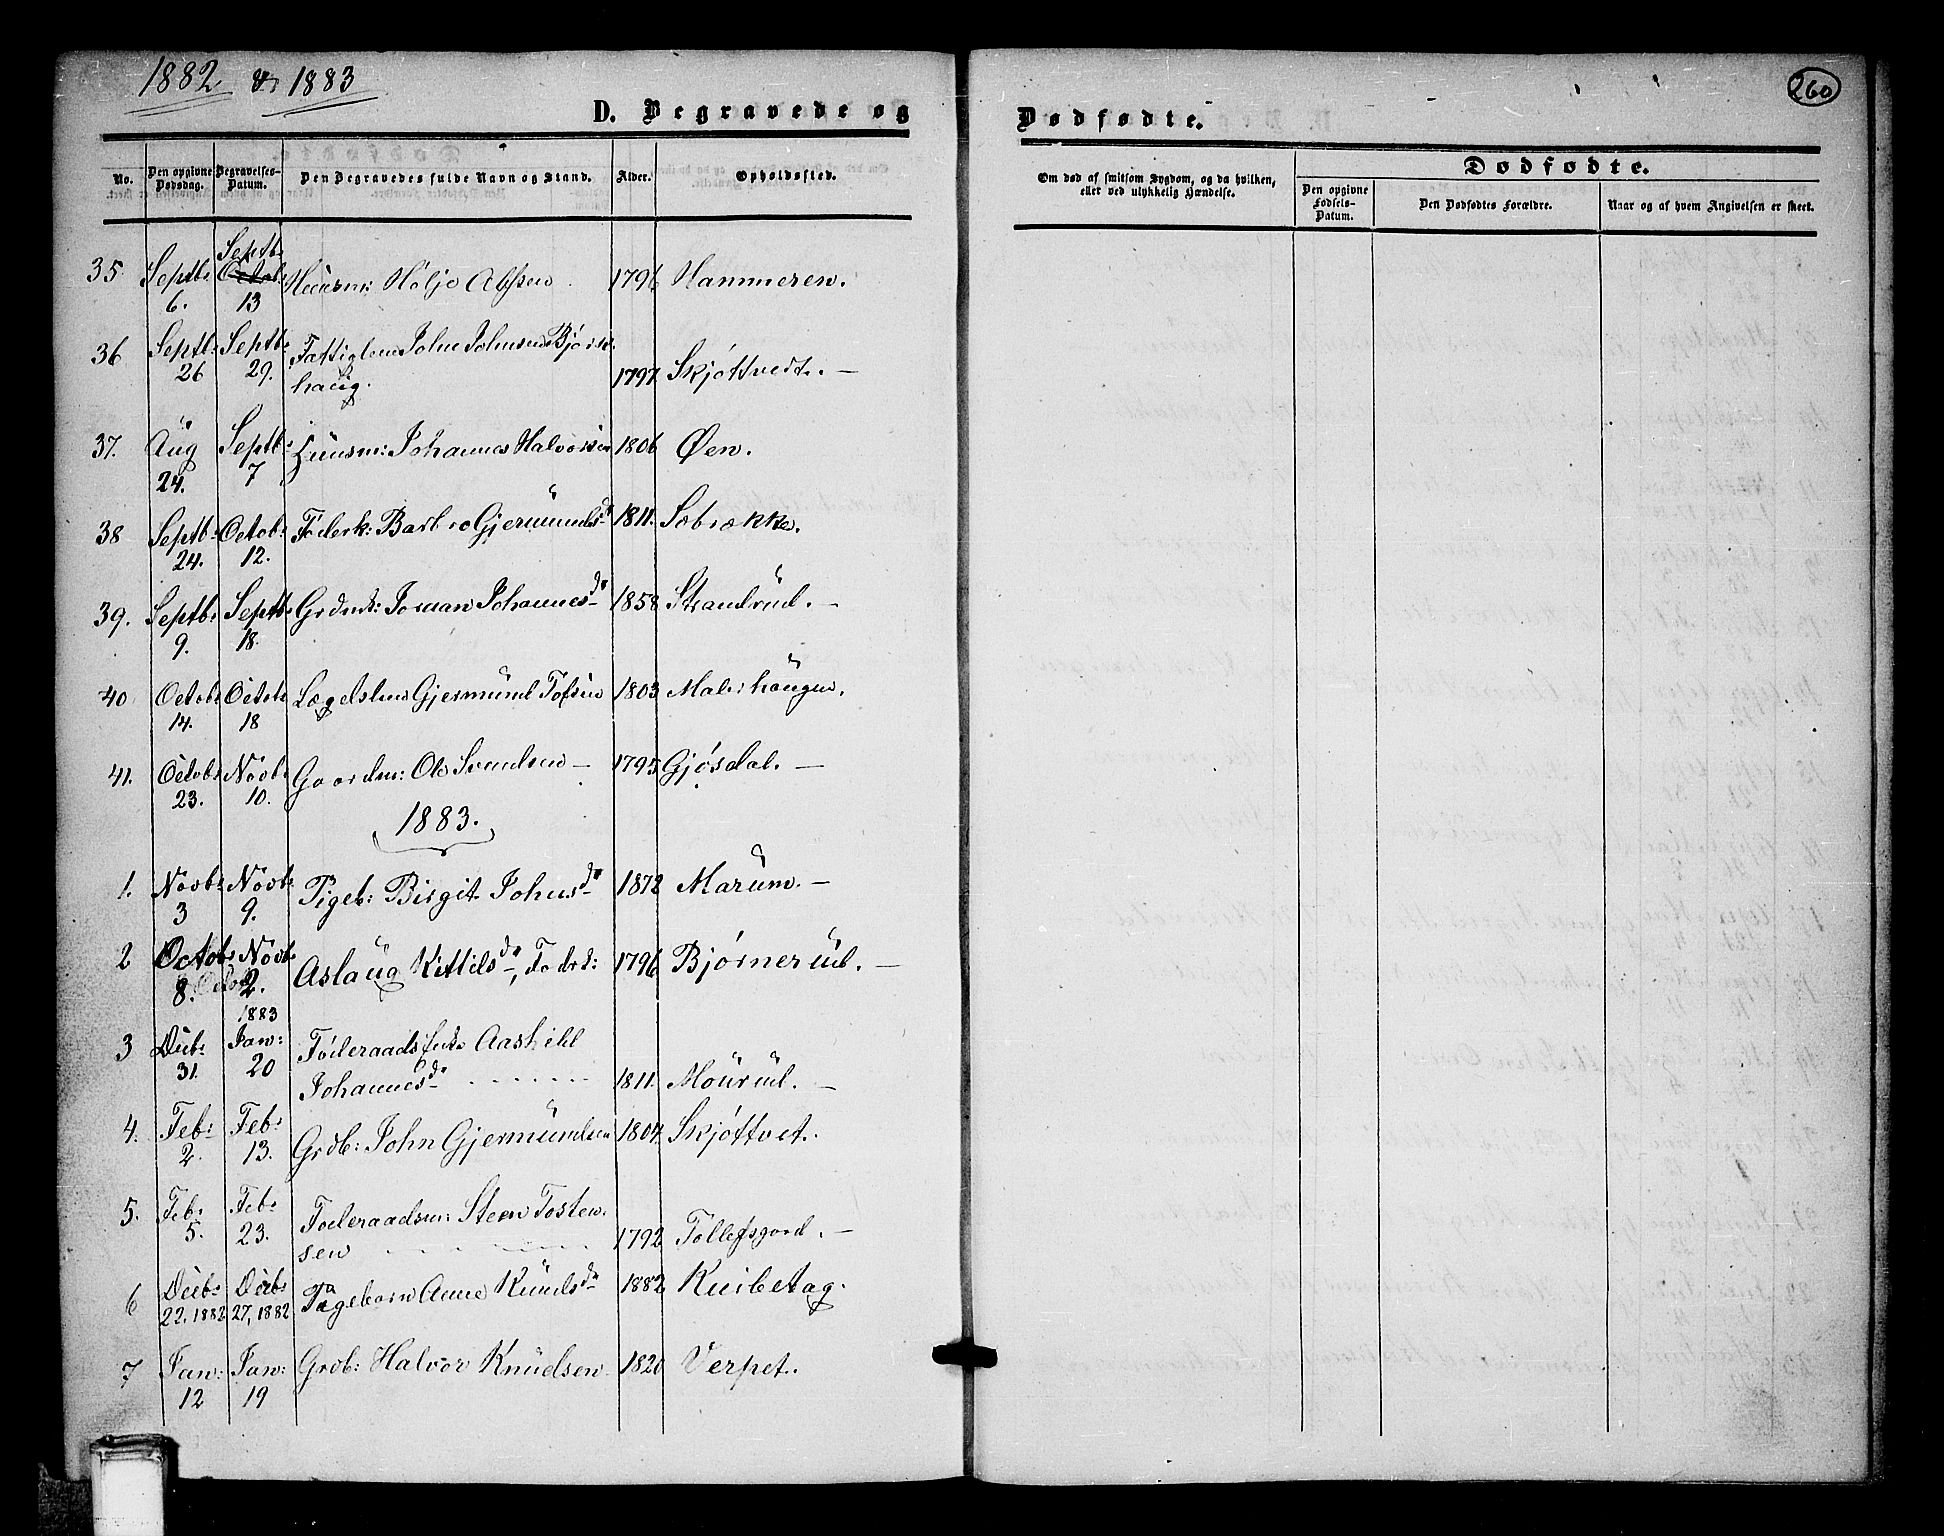 1882 & 1883
D. Begravede og
No. Den opgivne Dødsdag. Begravelses-Datum. Den Begravedes fulde Navn og Stand. Alder. Opholdssted.
35 Septb: 6. Septb: 13 Huusm: Høljo 1796 Hammeren.
36 Septb: 26 Septb: 29. Fattiglem John Johnsen
haug. 1797 Skjøttvedt. —
37. Aug 24. Septb: 7 Huusm: Johannes Halvorsen 1806 Øen.
38 Septb: 24. Octob: 12. Föderk: Barbro Gjermundsdr 1811. Sæbrække.
39. Septb: 9. Septb: 18. Joran Johannesdr 1858 Strandrud. —
40 Octob: 14. Octob: 18 Lægdslem Gjermund 1803 Malerhaugen.
41. Octob: 23. Novb: 10. Gaardm: Ole Svendsen — 1795 Gjøsdal. —
1883.
1. Novb: 3 Novb: 9. Pigeb: Birgit Johnsdr 1872 Marum. —
2 Octob: 8. Novb: 2. Aslaug Kittilsdr, 1796 Bjørnerud. —
1883
3 Decb: 31. Jan: 20 Föderaadsenke Aashild
Johannesdr 1811. Mourud. —
4. Feb: 2. Feb: 13. Grdb: John Gjermundsen 1804. Skjøttvet.
5. Feb: 5. Feb: 23. Föderaadsm: Steen Tosten
sen 1792 Tollefsgord. —
6 Decb: 22. 1882 Decb: 27, 1882 Pigebarn Anne Knudsdr 1882 Knibetag.
7 Jan: 12 Jan: 19 Grdb: Halvor Knudsen 1820 Verpet.
260
Dødfødte.
Om død af smitsom Sygdom, og da hvilken,
eller ved ulykkelig Hændelse.
Dødfødte.
Den opgivne Fødsels-Datum. Den Dødfødtes Forældre. Naar og af hvem Angivelsen er skeet.